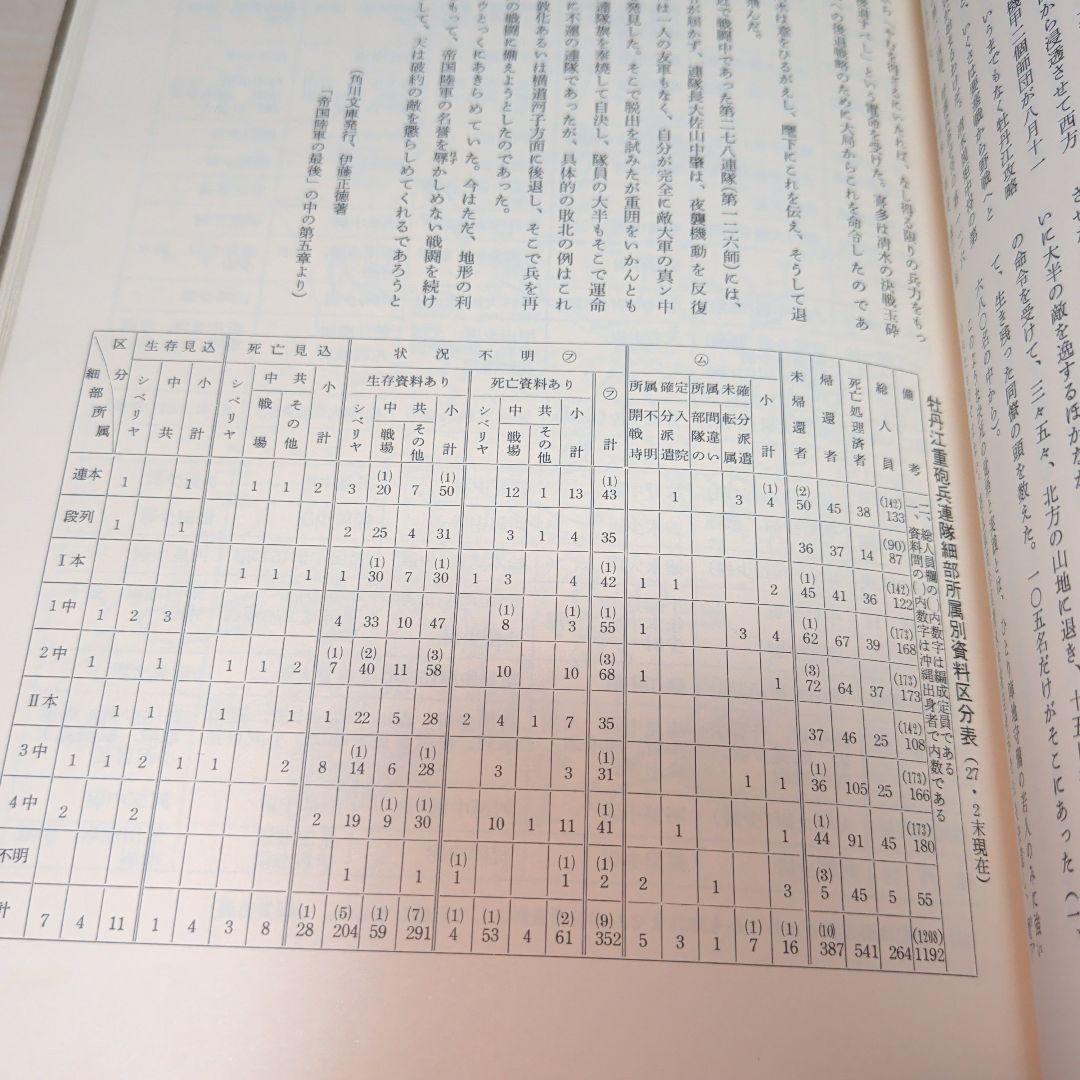 から浸透させて西方
機甲二個師団が八月十一
いうまでもなく牡丹江攻略
いに大半の敵を逸するほかなか
の命令を受けて、三々五々、北方の山地に赴き、十五
て、生き残った同僚の頭を数えた。一〇五名だけがそこにあった(
六八〇名の中から)。
への後退戦略のために大局からこれを命令したのであ
は章をひるがえし、麾下にこれを伝え、そうして退
飛んだ。
で戦闘中であった第二七八連隊(第一二六師)には、
が届かず、連隊長大佐山中肇は、夜襲機動を反復
は一人の友軍もなく、自分が完全に敵大軍の真ン中
発見した。そこで脱出を試みたが重囲をいかんとも
連隊旗を奉焼して自決し、隊員の大半もそこで運命
に不運の連隊であったが、具体的の敗北の例はこれ
敦化あるいは横道河子方面に後退し、そこで兵を再
の戦闘に備えようとしたのであった。
ウとっくにあきらめていた。今はただ、地形の利
もって、帝国陸軍の名誉を辱かしめない戦闘を続け
して、天は破約の敵を懲らしめてくれるであろうと
(角川文庫発行、伊藤正徳著
「帝国陸軍の最後」の中の第五章より)
牡丹江重砲兵連隊細部所属別資料区分表(27・2末現在)
区分 生存見込 死亡見込 状況不明㋫ ㋰ 未帰還者 帰還者 死亡処理済者 総人員 備考
細部所属 シベリヤ 中共 小計 シベリヤ 中共 戦場 その他 小計 生存資料あり 死亡資料あり ㋫計 所属確定 所属未確
シベリヤ 中共 戦場 その他 小計 シベリヤ 中共 戦場 その他 小計 開戦時不明 入院分派遣 部隊の間違い 転属分派遣 小計
一、総人員欄の( )内数字は編成定員である
二、資料間の( )内数字は沖縄出身者で内数である
連本 1 1 1 1 2 3 (1)20 7 (1)50 12 1 13 (1)43 1 3 (1)4 (2)50 45 38 (142)133
段列 1 1 2 25 4 31 3 1 4 35 36 37 14 (90)87
I本 1 1 1 1 (1)30 7 (1)30 1 3 4 (1)42 1 1 2 (1)45 41 36 (142)122
1中 1 2 3 4 33 10 47 (1)8 (1)3 (1)55 1 3 4 (1)62 67 39 (173)168
2中 1 1 1 1 2 (1)7 (2)40 11 (3)58 10 10 (3)68 1 1 (3)72 64 37 (173)173
II本 1 1 1 1 1 22 5 28 2 4 1 7 35 37 46 25 (142)108
3中 1 1 2 1 1 2 8 (1)14 6 (1)28 3 3 (1)31 1 1 (1)36 105 25 (173)166
4中 2 2 2 19 (1)9 (1)30 10 1 11 (1)41 1 1 (1)44 91 45 (173)180
不明 1 1 (1)1 (1)1 (1)2 2 1 3 (3)5 45 5 55
計 7 4 11 1 4 3 8 (1)28 (5)204 (1)59 (7)291 (1)4 (1)53 4 (2)61 (9)352 5 3 1 (1)7 (1)16 (10)387 541 264 (1208)1192